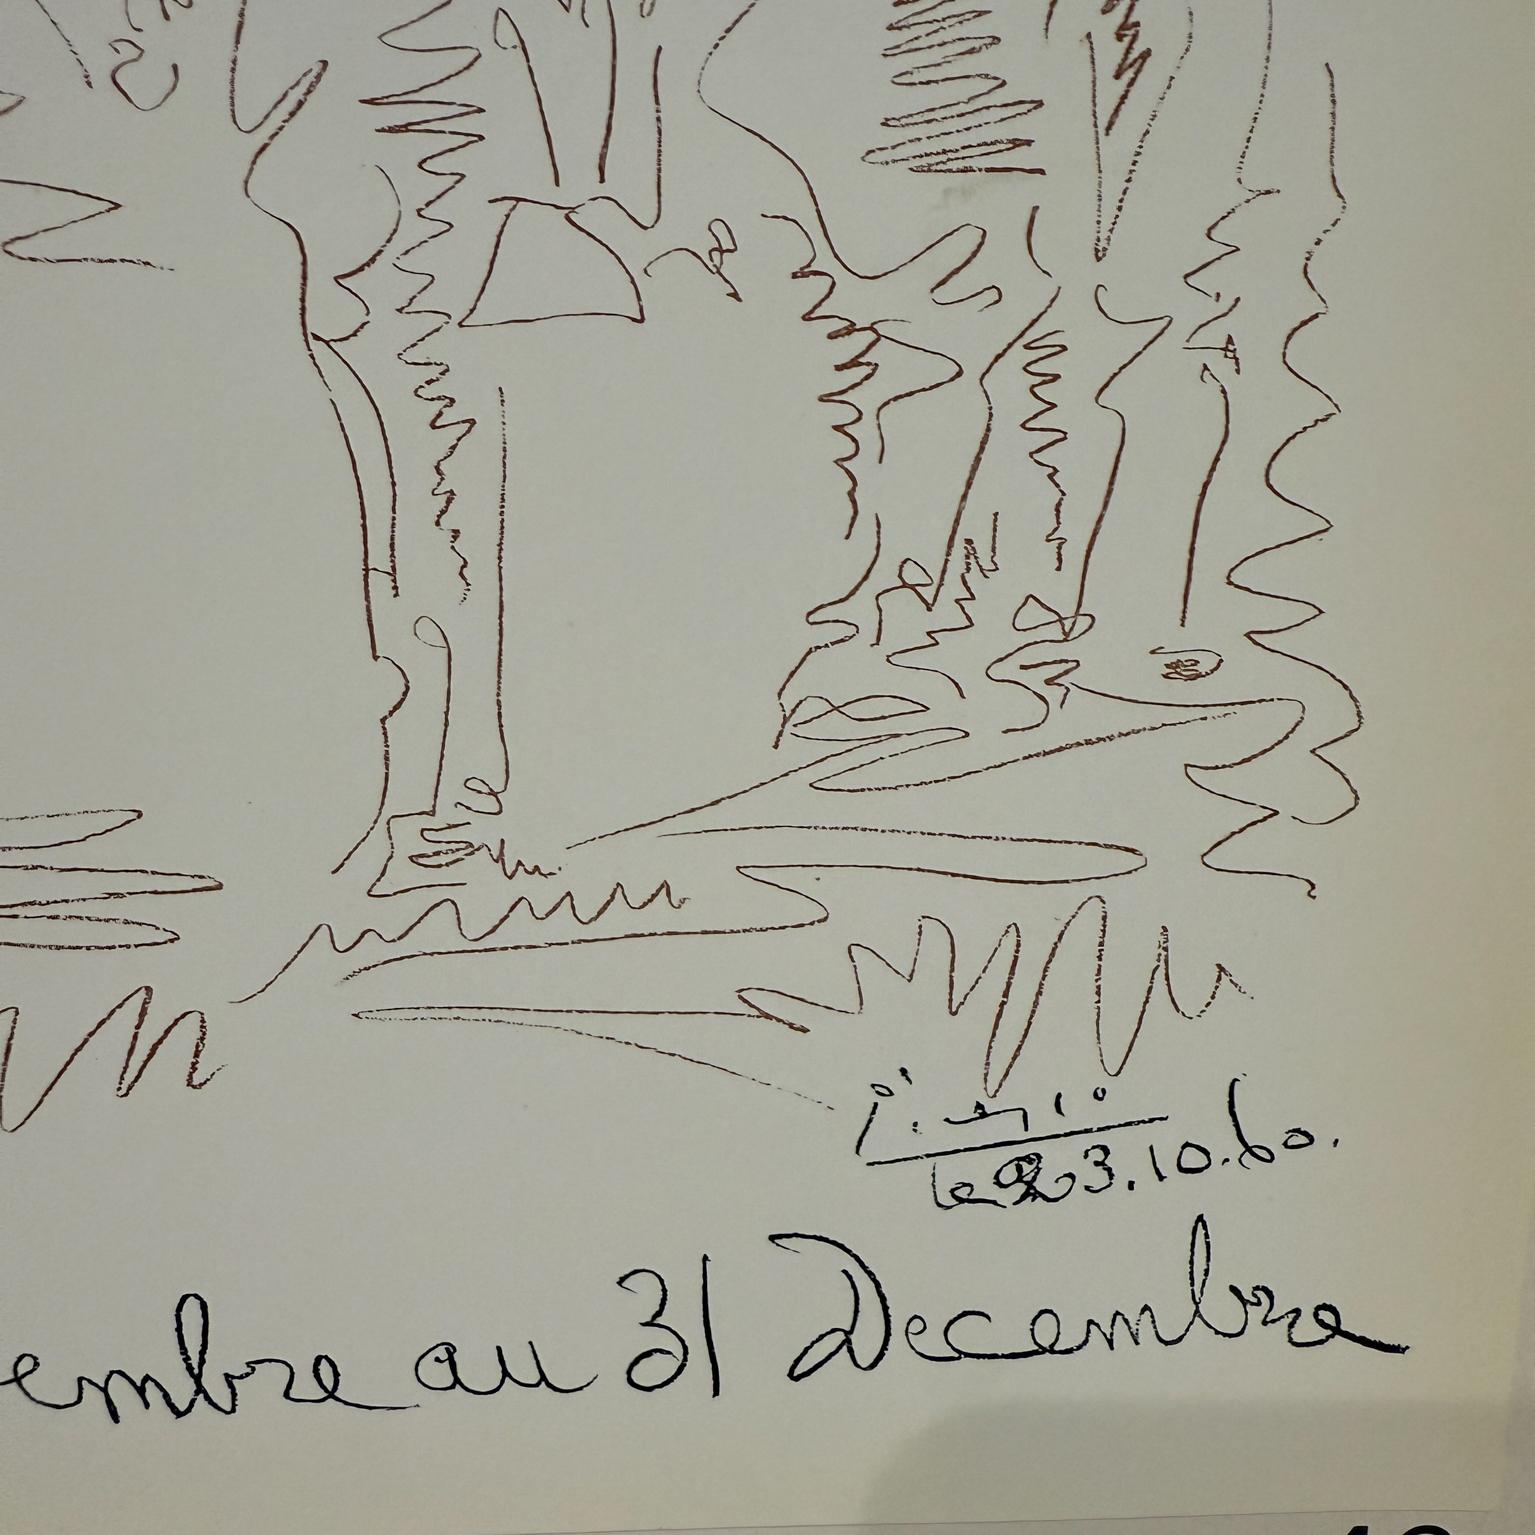 le 23.10.60.
embre au 31 Decembre